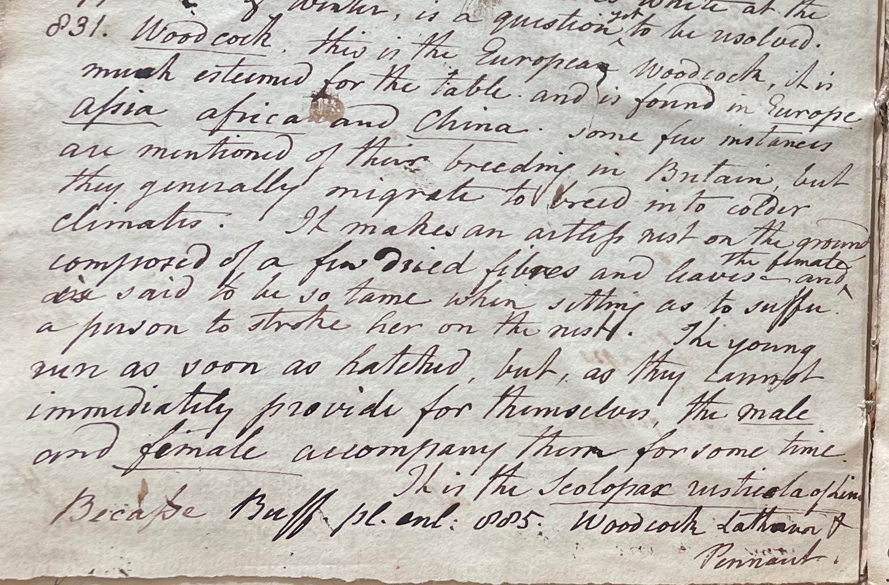 of Winter, is a question yet to be resolved.
831. Woodcock. this is the European Woodcock, it is
much esteemed for the table. and is found in Europe
asia africa and China. some few instances
are mentioned of their breeding in Britain, but
they generally migrate to breed into colder
climates. It makes an artless nest on the ground
composed of a few dried fibres and leaves and the female
is said to be so tame when sitting as to suffer
a person to stroke her on the nest. The young
run as soon as hatched, but, as they cannot
immediately provide for themselves, the male
and female accompany them for some time.
It is the Scolopax rusticola of Linn
Becasse Buff pl. enl: 885. Woodcock Latham &
Pennant.